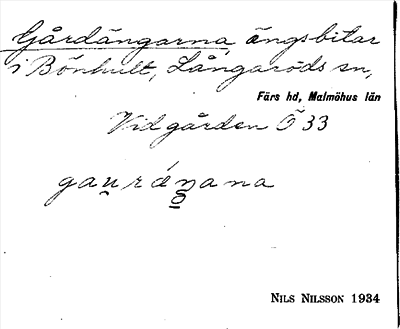 Gårdängarna ängsbitar
i Bönhult, Långaröds sn,
Färs hd, Malmöhus län
Vid gården Ö 33
NILS NILSSON 1934